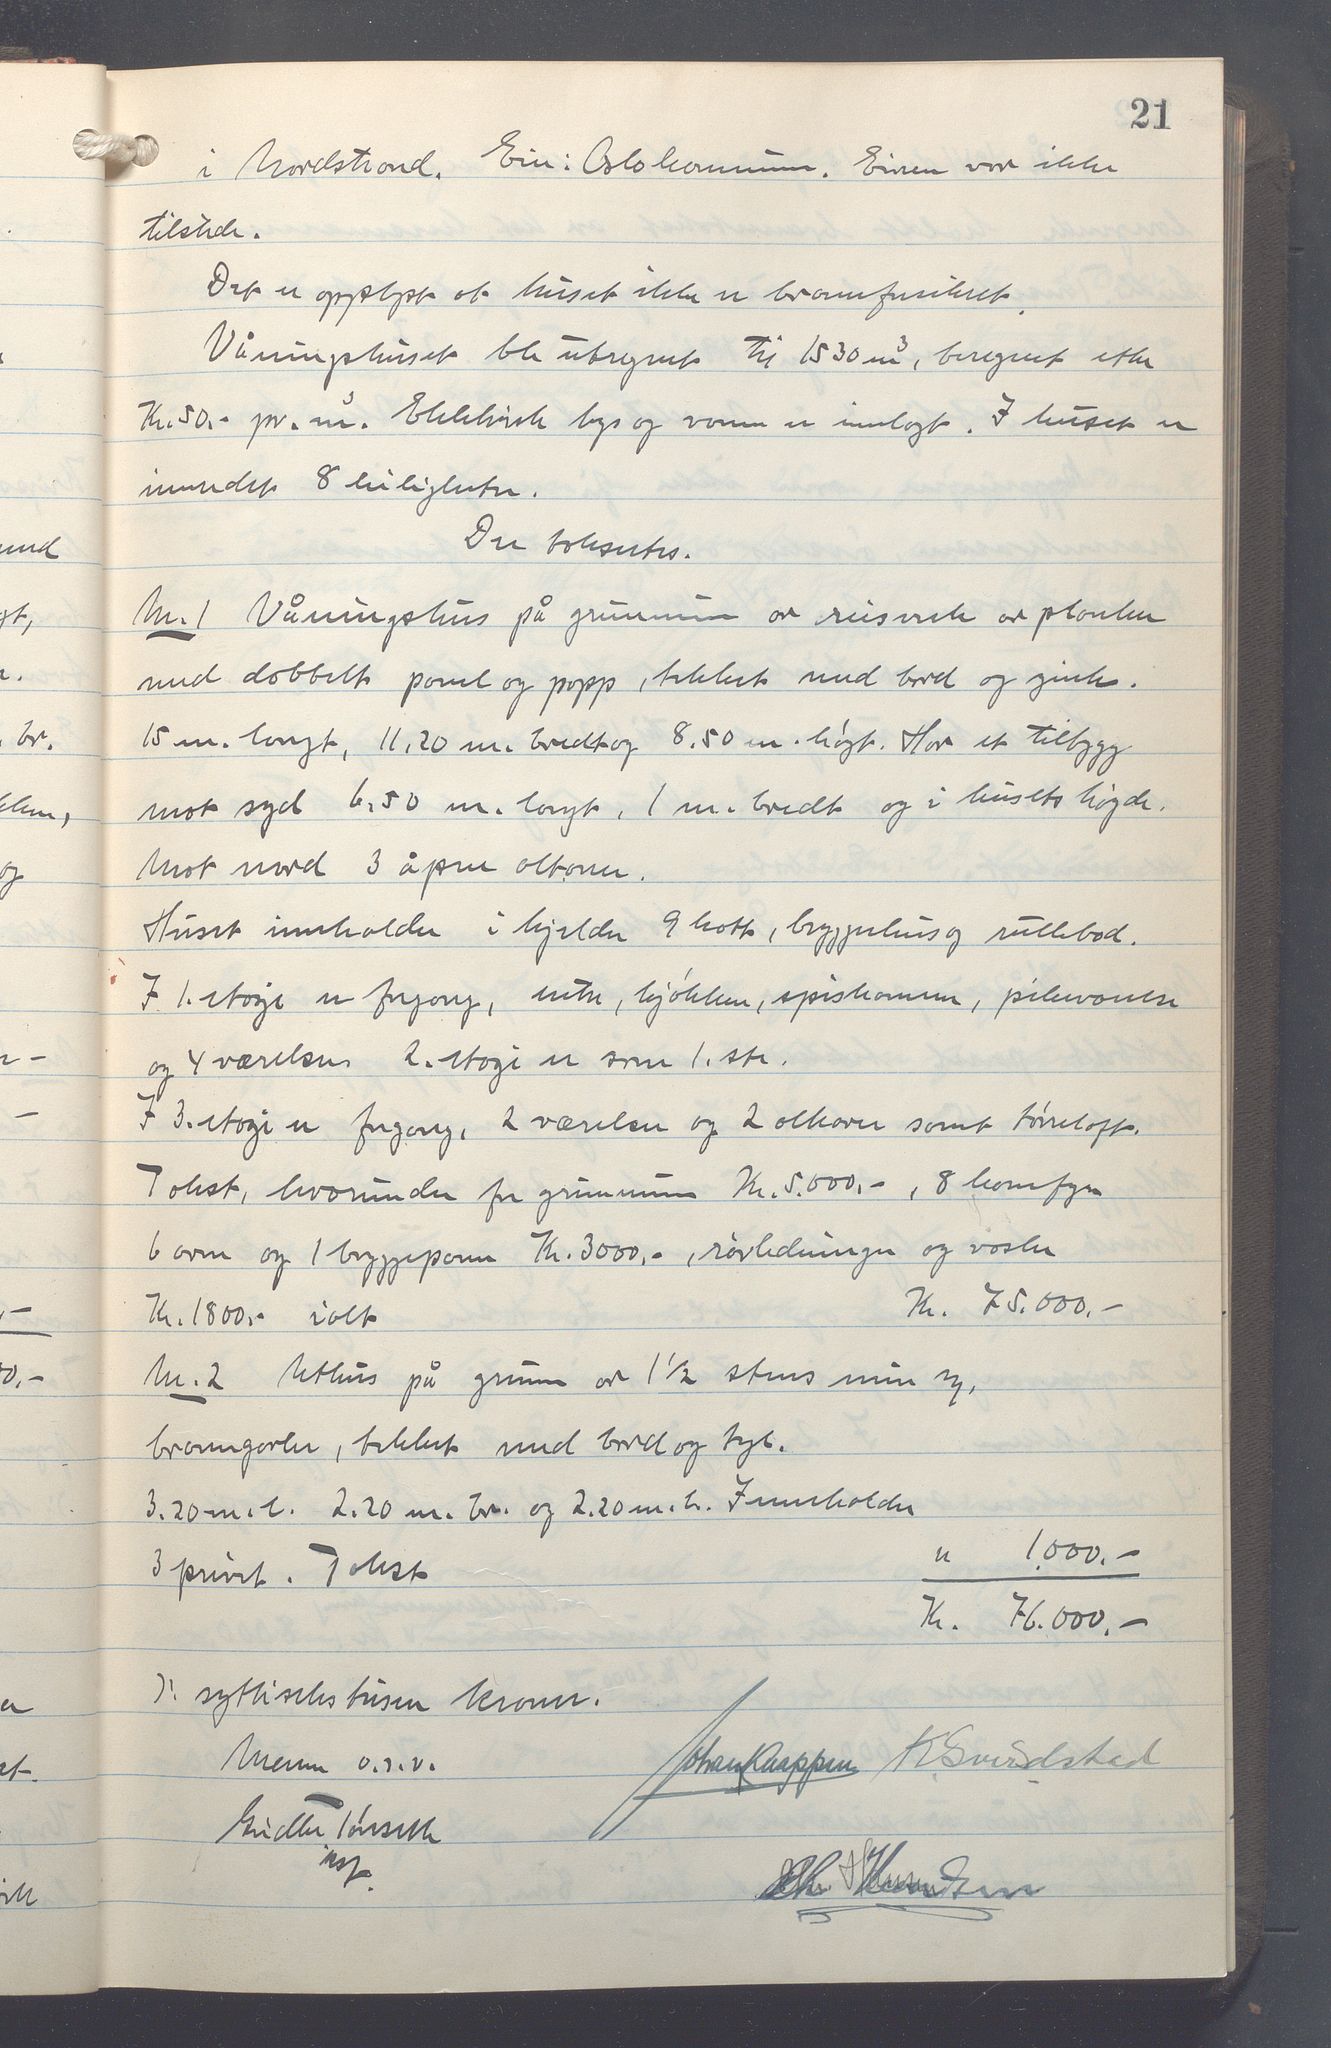 21
i Nordstrand. Eier: Oslo kommune. Eieren var ikke
tilstede.
Det er opplyst at huset ikke er brannforsikret.
Våningshuset ble utregnet til 1530 m³, beregnet etter
Kr. 50.- pr. m³. Elektrisk lys og varme er innlagt. I huset er
innredet 8 leiligheter.
Der takseres.
Nr. 1 Våningshus på grunnmur av reisverk av planker
med dobbelt panel og papp, tekket med bord og zink.
15 m. langt, 11.20 m. bredt og 8.50 m. høgt. Har et tilbygg
mot syd 6.50 m. langt, 1 m. bredt og i husets høgde.
Mot nord 3 åpne altaner.
Huset inneholder i kjelder 9 kott, bryggerhus og rullebod.
I 1. etage er frgang, entre, kjøkken, spiskammer, pikeværelse
og 4 værelser. 2. etage er som 1. ste.
I 3. etage er frgang, 2 værelser og 2 alkover samt tørreloft.
Takst, hvorunder for grunnmuren Kr. 5.000.-, 8 komfyrer
6 ovner og 1 bryggepanne Kr. 3000.-, rørledninger og vasker
Kr. 1800.- ialt Kr. 75.000.-
Nr. 2 Uthus på grunn av 1½ stens mur og,
branngavler, tekket med bord og tgl.
3.20 m. l. 2.20 m. br. og 2.20 m. h. Inneholder
3 privet. Takst " 1.000.-
Kr. 76.000.-
Syttisekstusen kroner.
Menn o.s.v.
Johan Kaappen K. Svindstad
insp.